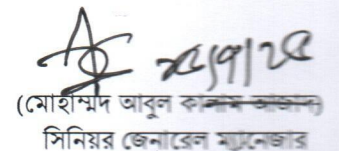 ২৫/৭/২৫
(মোহাম্মদ আবুল কালাম আজাদ)
সিনিয়র জেনারেল ম্যানেজার